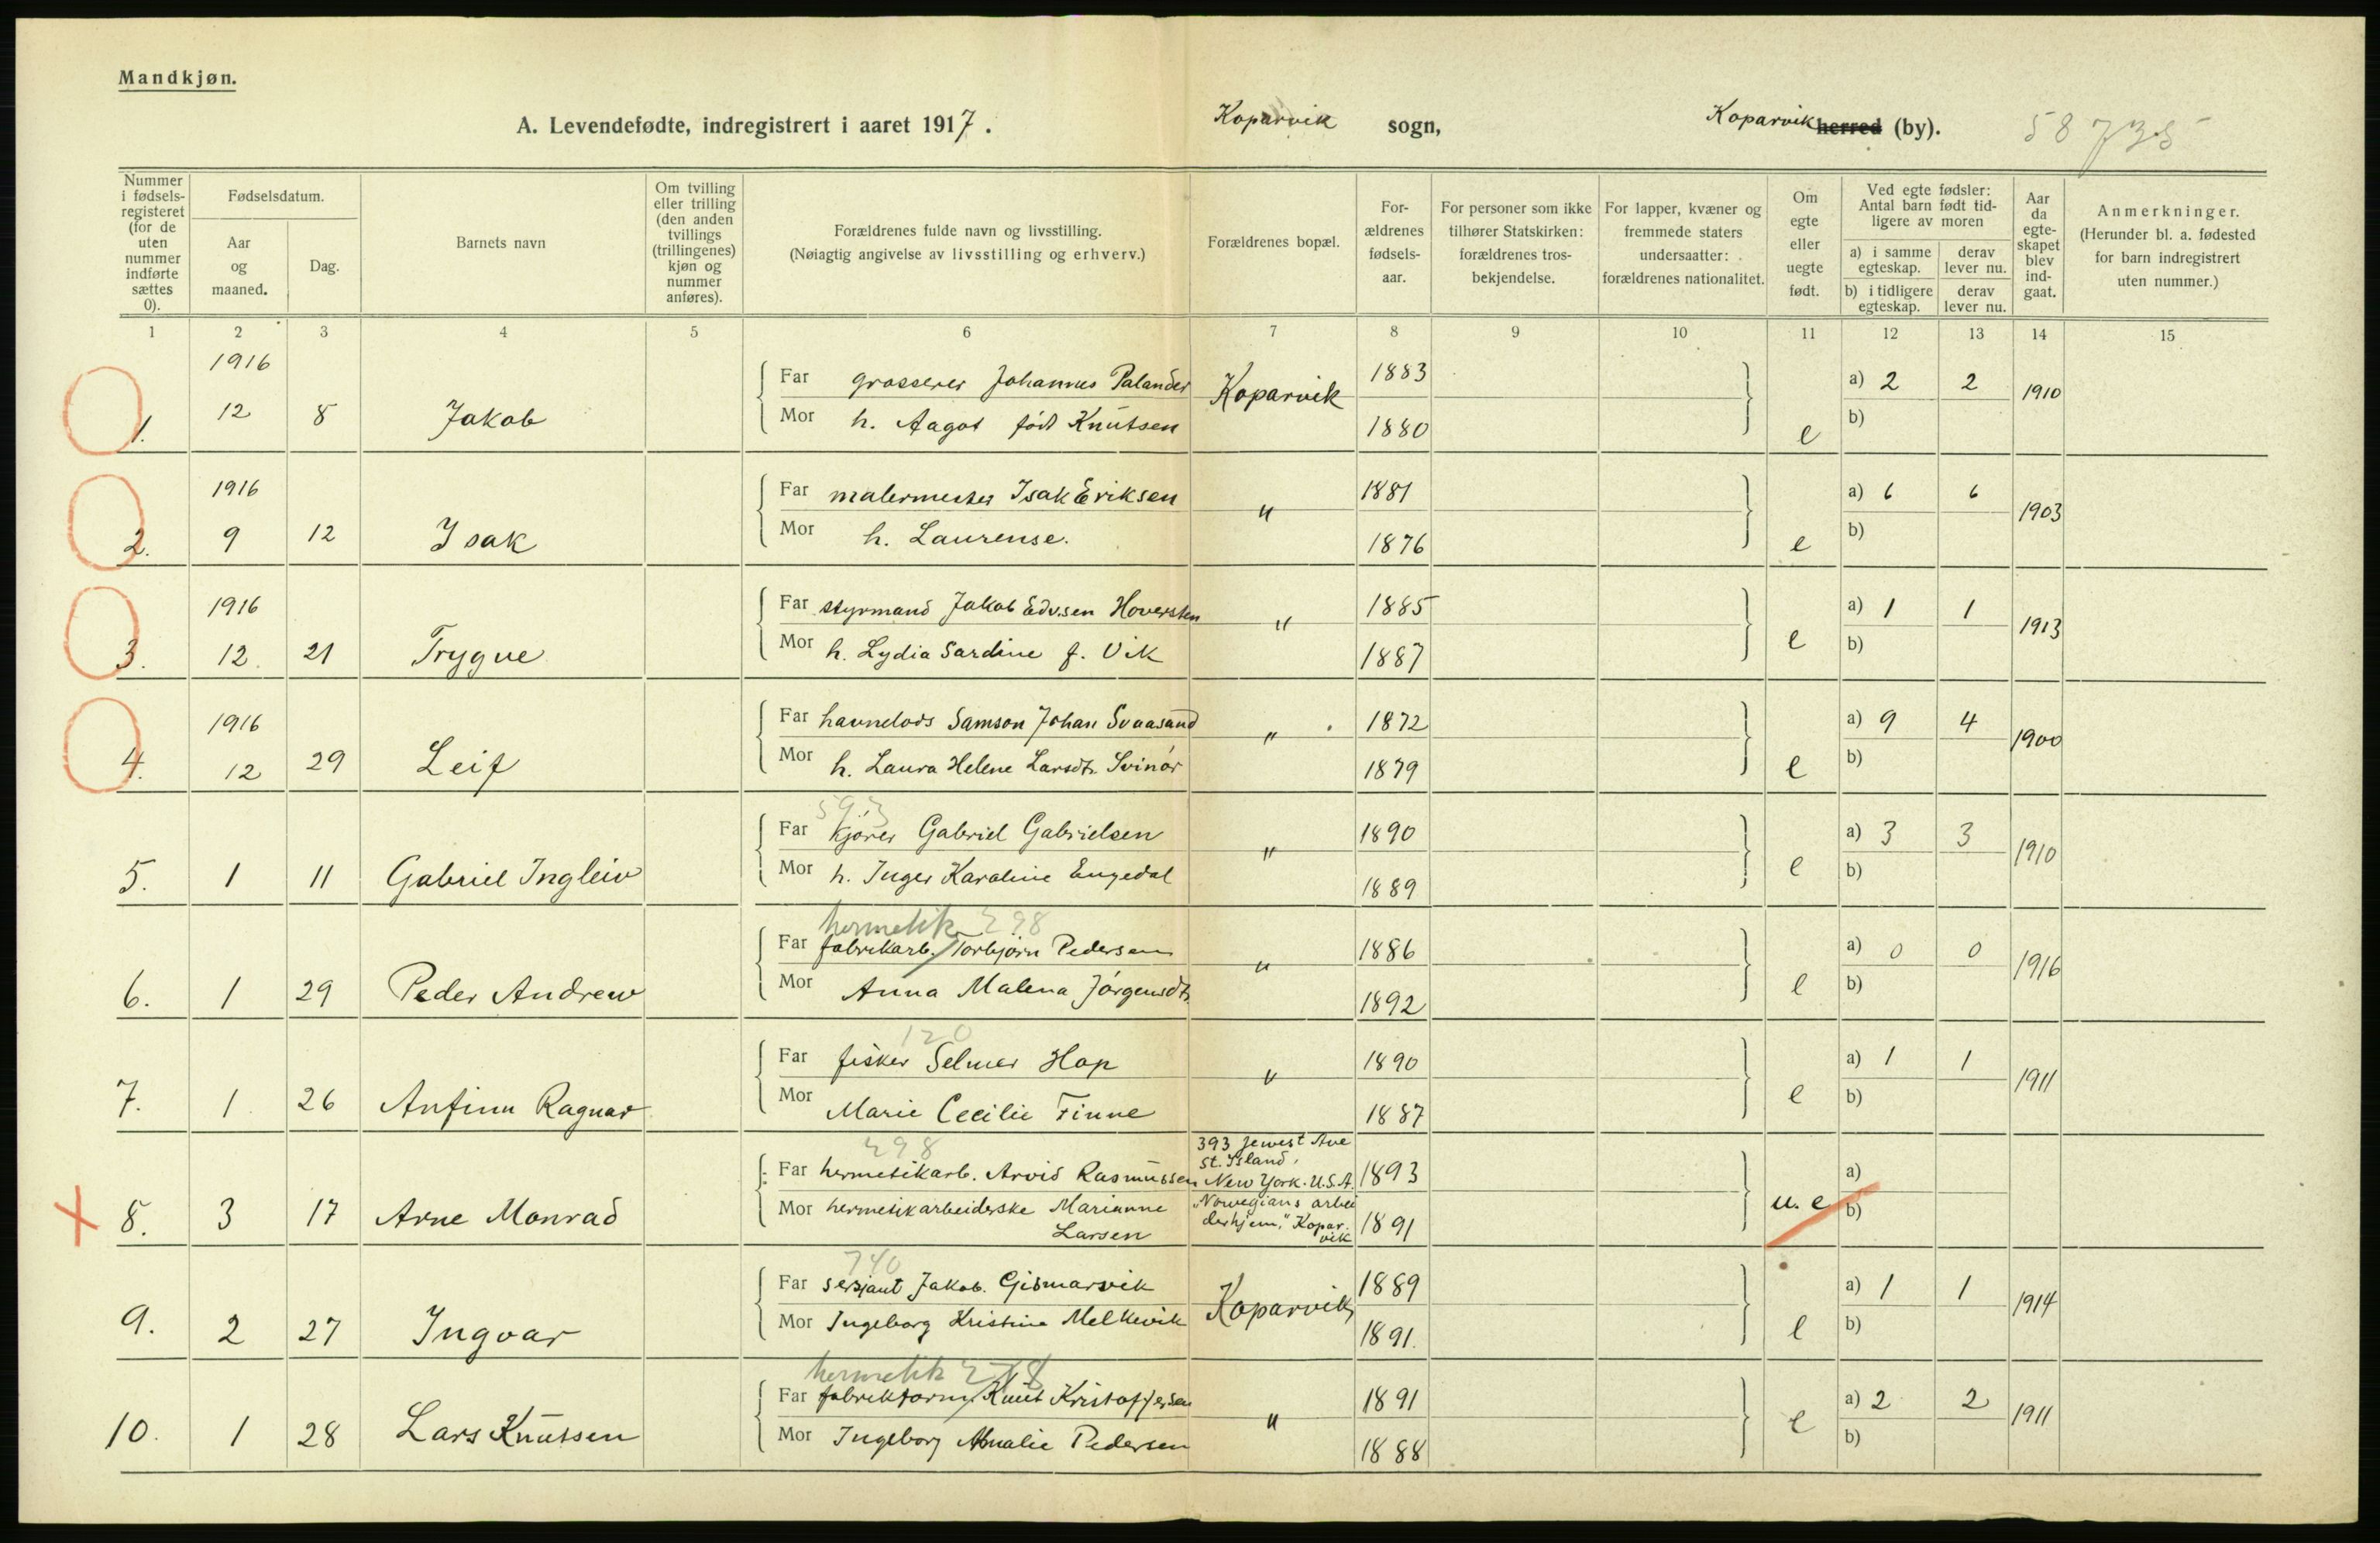 Mandkjøn.
A. Levendefødte, indregistrert i aaret 1917. Koparvik sogn, Koparvik herred (by). 58735
Nummer i fødsels-registeret (for de uten nummer indførte sættes 0). Fødselsdatum. Aar og maaned. Dag. Barnets navn Om tvilling eller trilling (den anden tvillings (trillingenes) kjøn og nummer anføres). Forældrenes fulde navn og livsstilling. (Nøiagtig angivelse av livsstilling og erhverv.) Forældrenes bopæl. For-ældrenes fødsels-aar. For personer som ikke tilhører Statskirken: forældrenes tros-bekjendelse. For lapper, kvæner og fremmede staters undersaatter: forældrenes nationalitet. Om egte eller uegte født. Ved egte fødsler: Antal barn født tid-ligere av moren a) i samme egteskap. derav lever nu. b) i tidligere egteskap. derav lever nu. Aar da egte-skapet blev ind-gaat. Anmerkninger. (Herunder bl. a. fødested for barn indregistrert uten nummer.)
1 2 3 4 5 6 7 8 9 10 11 12 13 14 15
1916
Far grosserer Johannes Palander Koparvik 1883 a) 2 2 1910
1. 12 8 Jakob Mor h. Aagot født Knutsen 1880 e b)
1916
Far malermester Isak Eriksen " 1881 a) 6 6 1903
2. 9 12 Isak Mor h. Laurense. 1876 e b)
1916
Far styrmand Jakob Edv.sen Hoversten " 1885 a) 1 1 1913
3. 12. 21 Trygve Mor h. Lydia Sardine f. Vik 1887 e b)
1916
Far havnelods Samson Johan Svaasand " 1872 a) 9 4 1900
4. 12 29 Leif Mor h. Laura Helene Larsdtr. Svinör 1879 e b)
593
Far kjører Gabriel Gabrielsen " 1890 a) 3 3 1910
5. 1 11 Gabriel Ingleiv Mor h. Inger Karoline Engedal 1889 e b)
hermetik 298
Far fabrikarb. Torbjørn Pedersen " 1886 a) 0 0 1916
6. 1 29 Peder Andrew Mor Anna Malena Jörgensdtr. 1892 e b)
120
Far fisker Selmer Hop " 1890 a) 1 1 1911
7. 1 26 Anfinn Ragnar Mor Marie Cecilie Finne 1887 e b)
298 393 Jewest Ave
St. Island,
Far hermetikarb. Arvid Rasmussen New York. U.S.A. 1893 a)
8. 3 17 Arne Monrad Mor hermetikarbeiderske Marianne Larsen "Nowegians arbeiderhjem," Koparvik 1891 u. e b)
740
Far sersjant Jakob. Gismarvik Koparvik 1889 a) 1 1 1914
9. 2 27 Ingvar Mor Ingeborg Kristine Melkevik 1891. e b)
hermetik 298
Far fabrikform. Knut Kristoffersen " 1891 a) 2 2 1911
10. 1 28 Lars Knutsen Mor Ingeborg Amalie Pedersen 1888 e b)